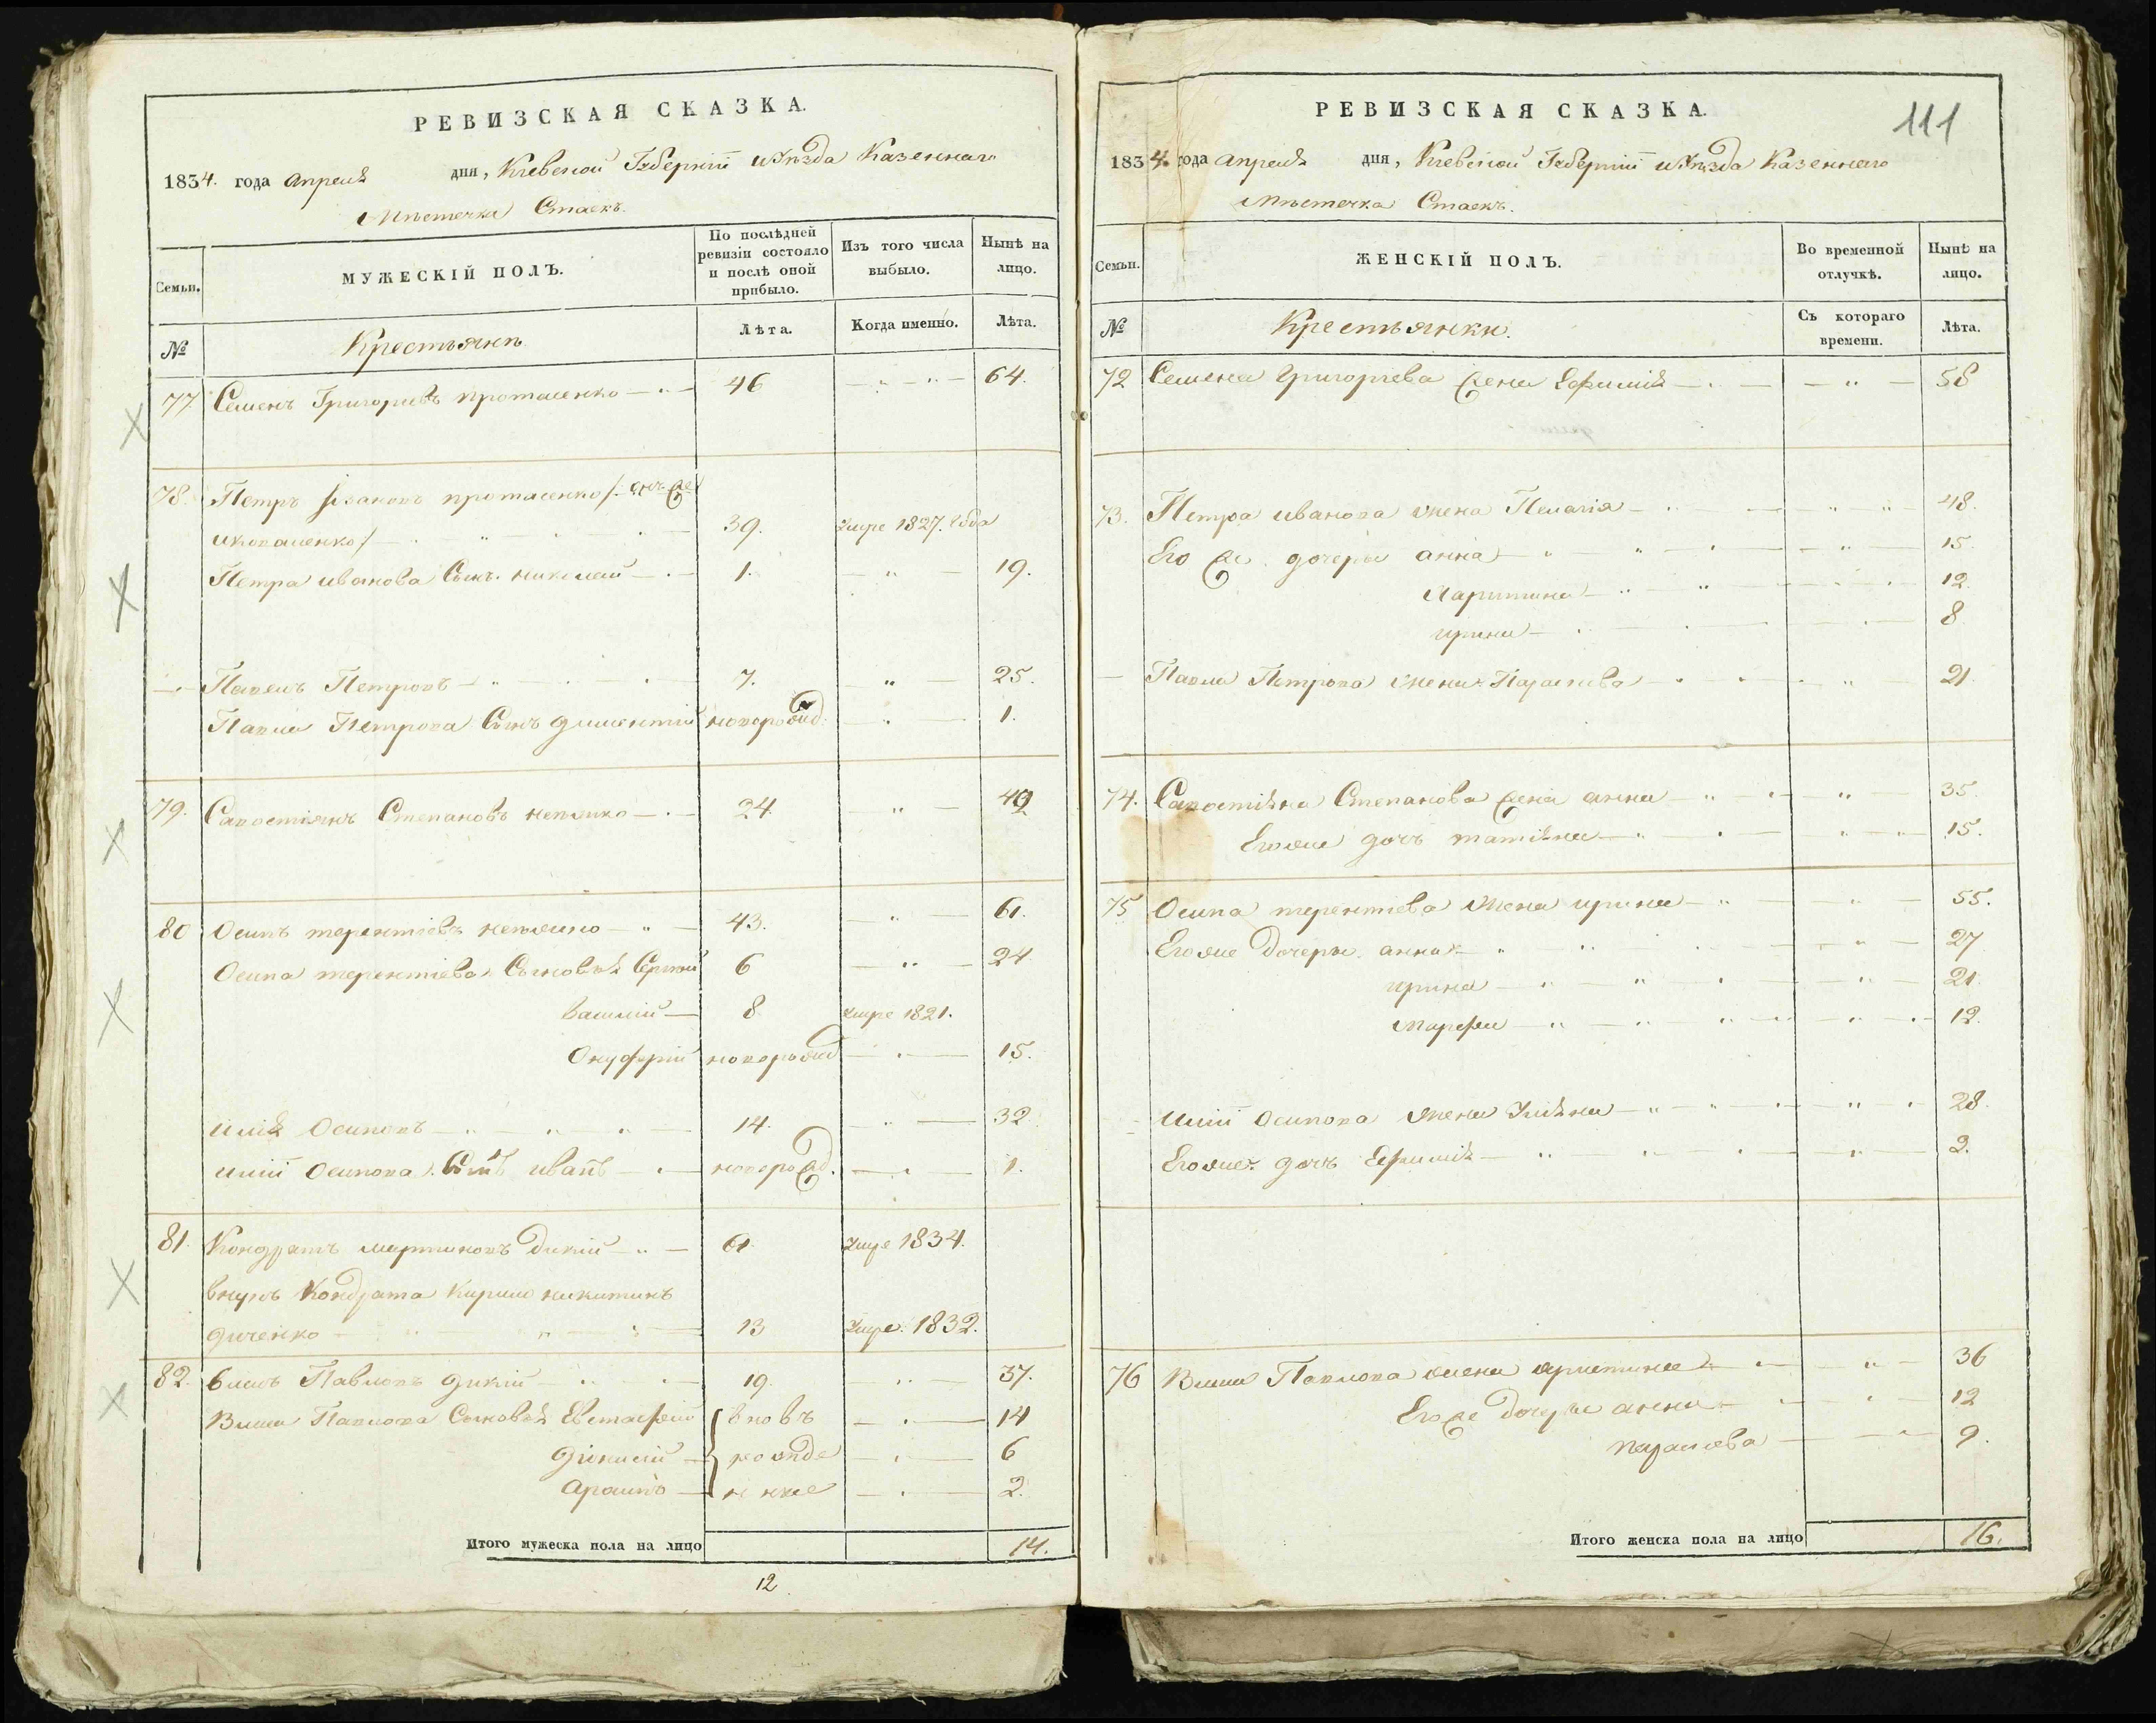 РЕВИЗСКАЯ СКАЗКА.
1834. года Апреля дня, Киевской Губерніи и Уѣзда Казеннаго
Мѣстечка Стаекъ.
Семьи.
МУЖЕСКІЙ ПОЛЪ.
По послѣдней ревизіи состояло и послѣ оной прибыло.
Изъ того числа выбыло.
Нынѣ на лицо.
№
Крестьянъ
Лѣта.
Когда именно.
Лѣта.
77. Семенъ Григорьевъ протасенко 46 64.
78. Петръ Ивановъ протасенко
39. Умре 1827. года
Петра иванова Сынъ николай 1. 19.
Павелъ Петровъ 7. 25.
Павла Петрова Сынъ дементій новорожд. 1.
79. Савостіянъ Степановъ 24. 42
80 Осипъ терентіевъ 43. 61.
Осипа терентіева Сыновья Сергій 6 24
василій 8. Умре 1821.
Онуфрій новорожд 15.
илія Осиповъ 14. 32.
иліи Осипова Сынъ иванъ новорожд. 1.
81. Кондратъ мартиновъ дикій 61. Умре 1834.
внукъ Кондрата Кирило никитинъ
диченко 13 Умре. 1832.
82. власъ Павловъ дикій 19. 37.
Власа Павлова Сыновья Евстафій вновь 14
6
2.
Итого мужеска пола на лицо 14.
12.
РЕВИЗСКАЯ СКАЗКА.
111
1834. года Апреля дня, Киевской Губерніи и Уѣзда Казеннаго
Мѣстечка Стаекъ.
Семьи.
ЖЕНСКІЙ ПОЛЪ.
Во временной отлучкѣ.
Нынѣ на лицо.
№
Крестьянки.
Съ котораго времени.
Лѣта.
72 Семена Григорьева жена Ефимія 58
73. Петра иванова жена Пелагія 48.
Его же дочери анна 15.
12.
ирина 8.
Павла Петрова жена Параскева 21
74. Савостіяна Степанова жена анна 35.
Его же дочь татіяна 15.
75 Осипа терентіева жена ирина 55.
Его же дочери анна 27
ирина 21.
Марфа 12.
иліи Осипова жена Уліяна 28.
Его же дочь Ефимія 2.
76 Власа Павлова жена христина 36
Его же дочери анна 12
параскева 9.
Итого женска пола на лицо 16.